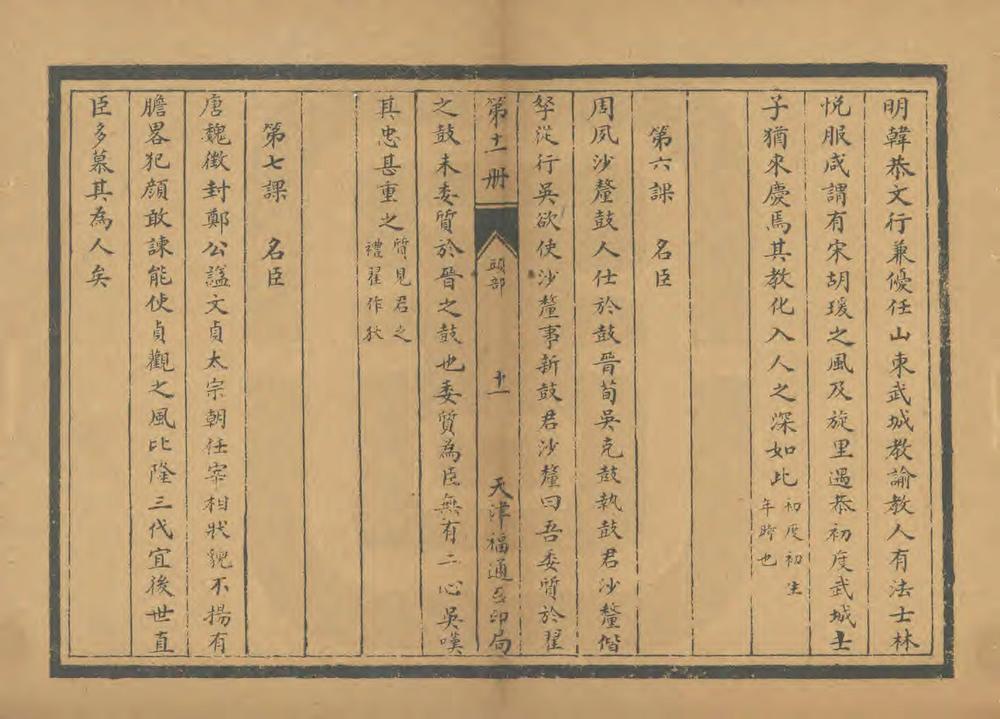 明韓恭文行兼優任山東武城教諭教人有法士林
悅服咸謂有宋胡瑗之風及旋里遇恭初度武城士
子猶來慶焉其教化入人之深如此初度初生年時也
第六課　名臣
周夙沙釐鼓人仕於鼓晉荀吳克鼓執鼓君沙釐偕
孥從行吳欲使沙釐事新鼓君沙釐曰吾委質於翟
第十一册　頭部　十一　天津福通石印局
之鼓未委質於晉之鼓也委質為臣無有二心吳嘆
其忠甚重之質見君之禮翟作狄
第七課　名臣
唐魏徵封鄭公謚文貞太宗朝任宰相狀貌不揚有
膽畧犯顏敢諫能使貞觀之風比隆三代宜後世直
臣多慕其為人矣